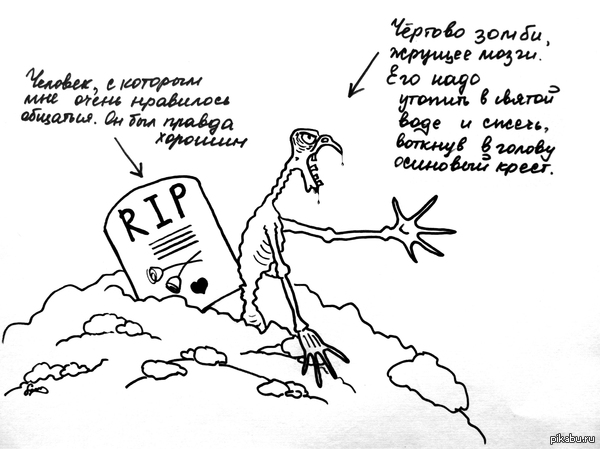 Человек, с которым
мне очень нравилось
общаться. Он был правда
хорошим
Чёртово зомби,
жрущее мозги.
Его надо
утопить в святой
воде и сжечь,
воткнув в голову
осиновый крест.
RIP
pikabu.ru